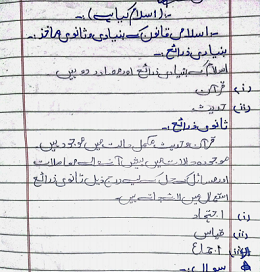 (اسلام کیا ہے)
اسلامی قانون کے بنیادی و ثانوی ماخذ:۔
بنیادی ذرائع:۔
اسلام کے بنیادی ذرائع اور مصادر دو ہیں
(i) قرآن
(ii) حدیث
ثانوی ذرائع:۔
قرآن و حدیث مکمل حالت میں موجود ہیں۔
موجودہ حالات میں پیش آنے والے معاملات
اور مسائل کے حل کے لیے درج ذیل ثانوی ذرائع
استعمال میں لائے جاتے ہیں
(i) اجتہاد
(ii) قیاس
(iii) اجماع
سوال:۔